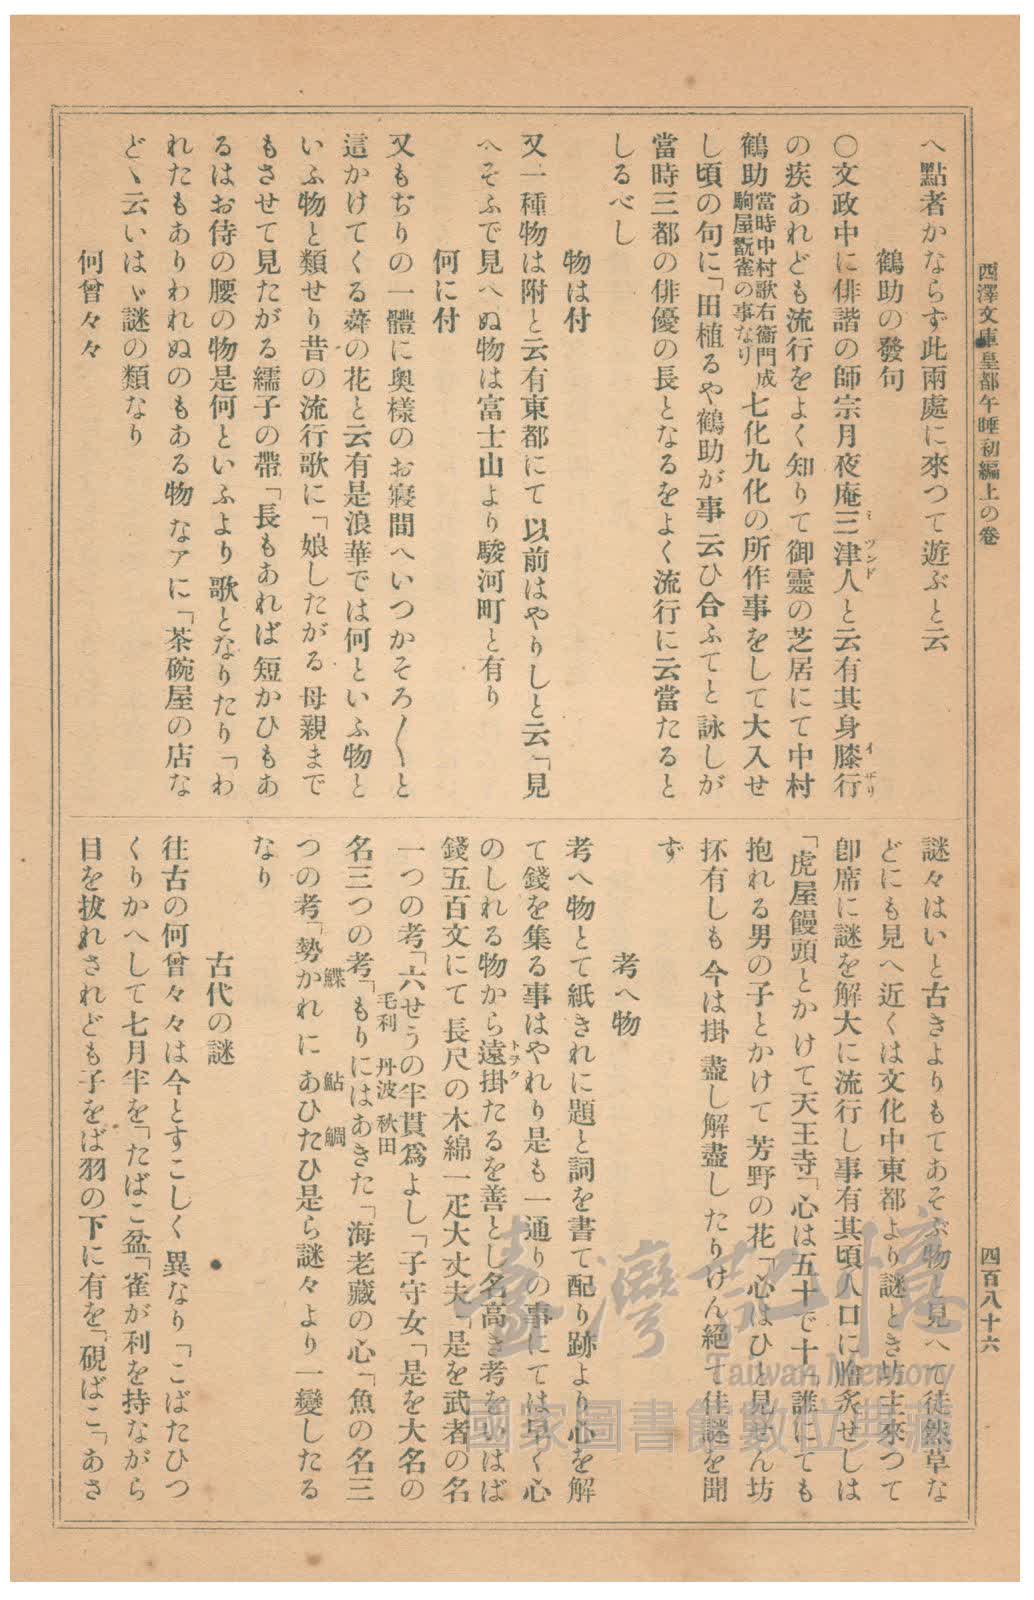 西澤文庫皇都午睡初編上の卷
四百八十六
へ點者かならず此兩處に來つて遊ぶと云
鶴助の發句
〇文政中に俳諧の師宗月夜庵三津人と云有其身膝行
ミツンド
イザリ
の疾あれども流行をよく知りて御靈の芝居にて中村
鶴助當時中村歌右衞門成駒屋翫雀の事なり七化九化の所作事をして大入せ
し頃の句に「田植るや鶴助が事云ひ合ふてと詠しが
當時三都の俳優の長となるをよく流行に云當たると
しるべし
物は付
又一種物は附と云有東都にて以前はやりしと云「見
へそふで見へぬ物は富士山より駿河町と有り
何に付
又もぢりの一體に奥樣のお寢間へいつかそろ〳〵と
這かけてくる蕣の花と云有是浪華では何といふ物と
いふ物と類せり昔の流行歌に「娘したがる母親まで
もさせて見たがる繻子の帶「長もあれば短かひもあ
るはお侍の腰の物是何といふより歌となりたり「わ
れたもありわれぬのもある物なアに「茶碗屋の店な
どゝ云いはゞ謎の類なり
何曾々々
謎々はいと古きよりもてあそぶ物と見へて徒然草な
どにも見へ近くは文化中東都より謎とき坊主來つて
卽席に謎を解大に流行し事有其頃人口に膾炙せしは
「虎屋饅頭とかけて天王寺「心は五十で十「誰にても
抱れる男の子とかけて芳野の花「心はひと見せん坊
抔有しも今は掛盡し解盡したりけん絕て佳謎を聞
ず
考へ物
考へ物とて紙きれに題と詞を書て配り跡より心を解
て錢を集る事はやれり是も一通りの事にては早く心
のしれる物から遠掛たるを善とし名高き考をいはば
トヲク
錢五百文にて長尺の木綿一疋大丈夫「是を武者の名
一つの考「六せうの半貫爲よし「子守女「是を大名の
毛利 丹波 秋田
名三つの考「もりにはあきた「海老藏の心「魚の名三
つの考「勢かれにあひたひ是ら謎々より一變したる
鰈 鮎 鯛
なり
古代の謎
往古の何曾々々は今とすこしく異なり「こばたひつ
くりかへして七月半を「たばこ盆「雀が利を持ながら
目を拔れされども子をば羽の下に有を「硯ばこ「あさ
臺灣記憶
Taiwan Memory
國家圖書館數位典藏